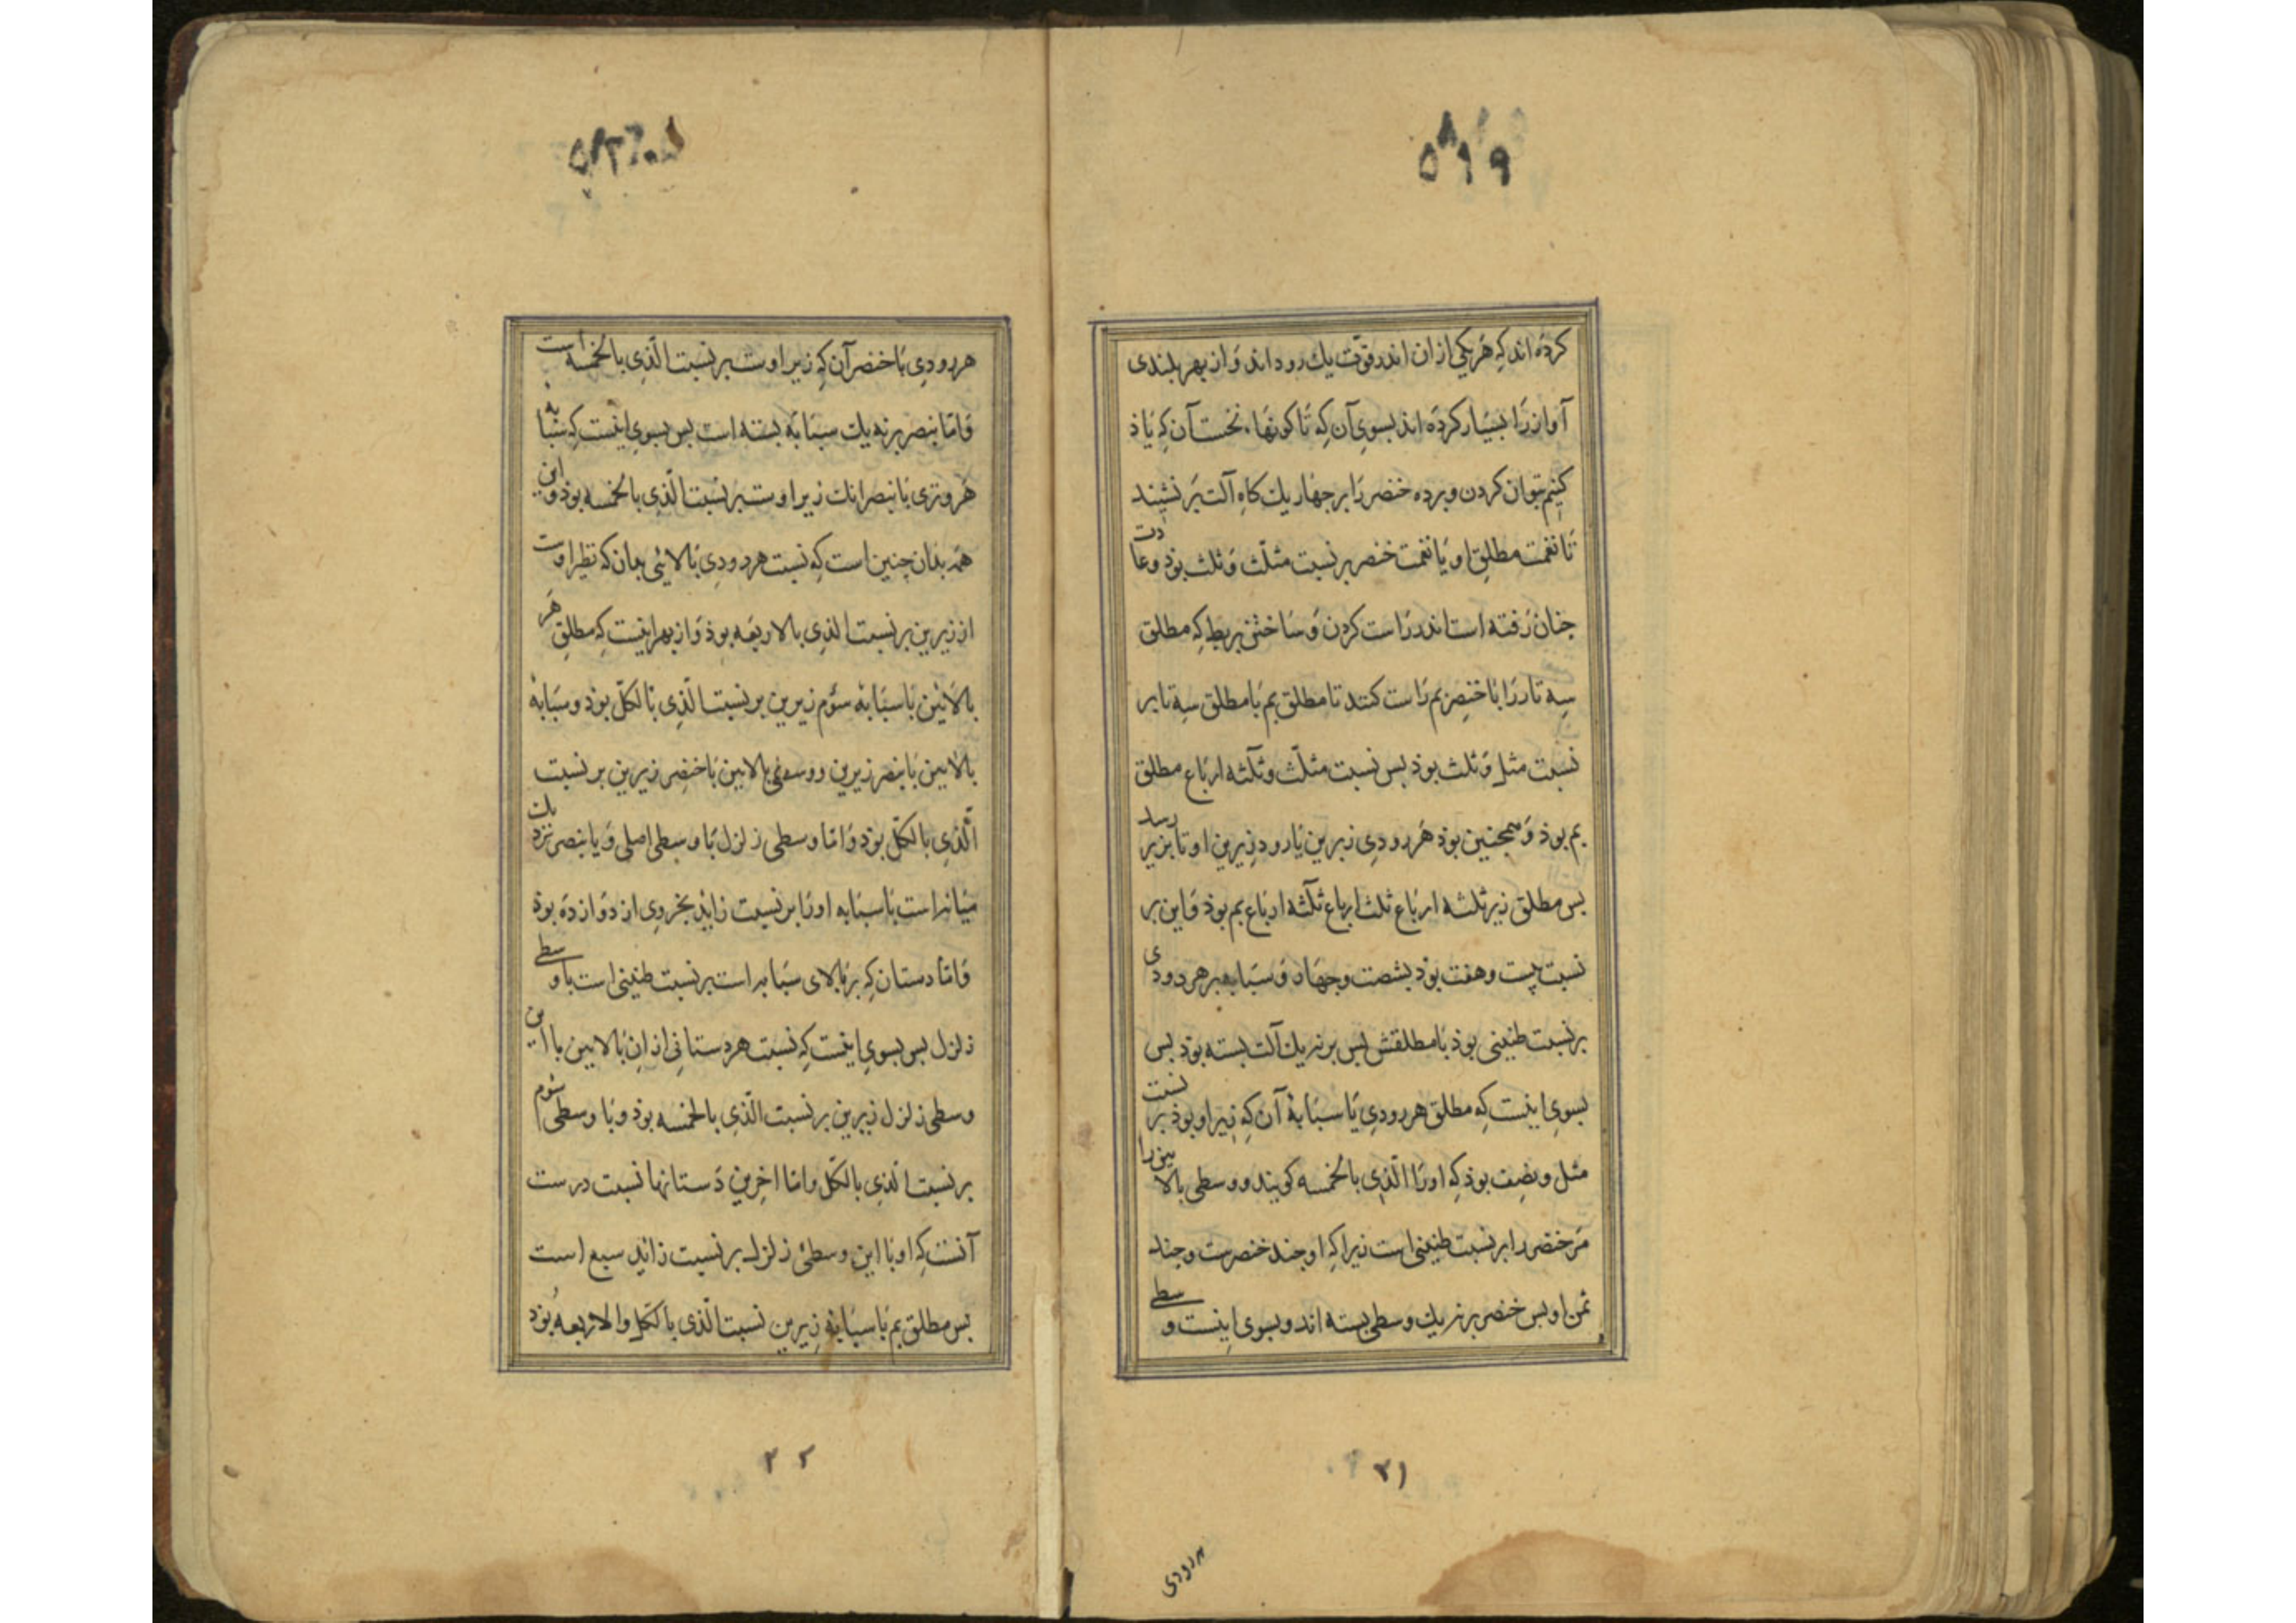 ۵۱۹
کرده اند که هر یکی ازان اندر قوّت یك رود اند و از بهر بلندی
آواز را بسیار کرده اند بسوی آن که تا کونها. نخست آن که یاذ
کنیم بتوان کردن و برده خنصر را بر جهار یك کاه آلت برنشیند
تا نغمت مطلق او با نغمت خنصر بر نسبت مثلث و ثلث بوذ و عادت
جنان رفته است اندر راست کردن و ساختن بربط که مطلق
سه تار را با خنصر بم راست کنند تا مطلق بم با مطلق سه تا بر
نسبت مثل و ثلث بوذ بس نسبت مثلّث و ثلثه ارباع مطلق
بم بوذ و همجنین بوذ هر رودی زبرین یا رود زیرین او تا بزیر رسد
بس مطلق زیر ثلثه ارباع ثلث ارباع ثلثه ارباع بم بوذ و این بر
نسبت بیست و هفت بوذ بشصت و جهار و سبابه بر هر رودی
بر نسبت طنینی بوذ با مطلقش بس بر نه یك آلت بسته بوذ بس
بسوی اینست که مطلق هر رودی با سبابهٔ آن که زیر او بوذ بر نسبت
مثل و نصف بوذ که او را الّذی بالخمسه کویند و وسطی بالایین را
مر خنصر را بر نسبت طنینی است زیرا که او جند خنصرست و جند
ثمن او بس خنصر بر نه یك وسطی بسته اند و بسوی اینست وسطی
۲۱
هر رودی
هر رودی با خنصر آن که زیر اوست بر نسبت الّذی بالخمسه است
و امّا بنصر بر نه یك سبّابه بسته است بس بسوی اینست که سبّابه
هر وتری با بنصر انك زیر اوست بر نسبت الّذی بالخمسه بوذ و این
همه بدان جنین است که نسبت هر رودی بالایی بدان که نظیر اوست
از زیرین بر نسبت الذی بالاربعه بوذ و از بهر اینست که مطلق هر
بالایین با سبابهٔ سوّم زیرین بر نسبت الّذی بالکلّ بوذ و سبابهٔ
بالایین با بنصر زیرین و وسطی بالایین با خنصر زیرین بر نسبت
الّذی بالکلّ بوذ و امّا وسطی زلزل با وسطی اصلی و یا بنصر نزدیك
میانه است با سبابه او را بر نسبت زاید بجزوی از دوازده بوذ
و امّا دستان که بر بالای سبابه است بر نسبت طنینی است با وسطی
زلزل بس بسوی اینست که نسبت هر دستانی از ان بالایین با این
وسطی زلزل زیرین بر نسبت الّذی بالخمسه بوذ و با وسطی سوّم
بر نسبت الّذی بالکلّ و امّا اخرین دستانها نسبت درست
آنست که او با این وسطی زلزل بر نسبت زاید سبع است
بس مطلق بم با سبابهٔ زیرین نسبت الّذی بالکل و الاربعه بوذ
۲۲